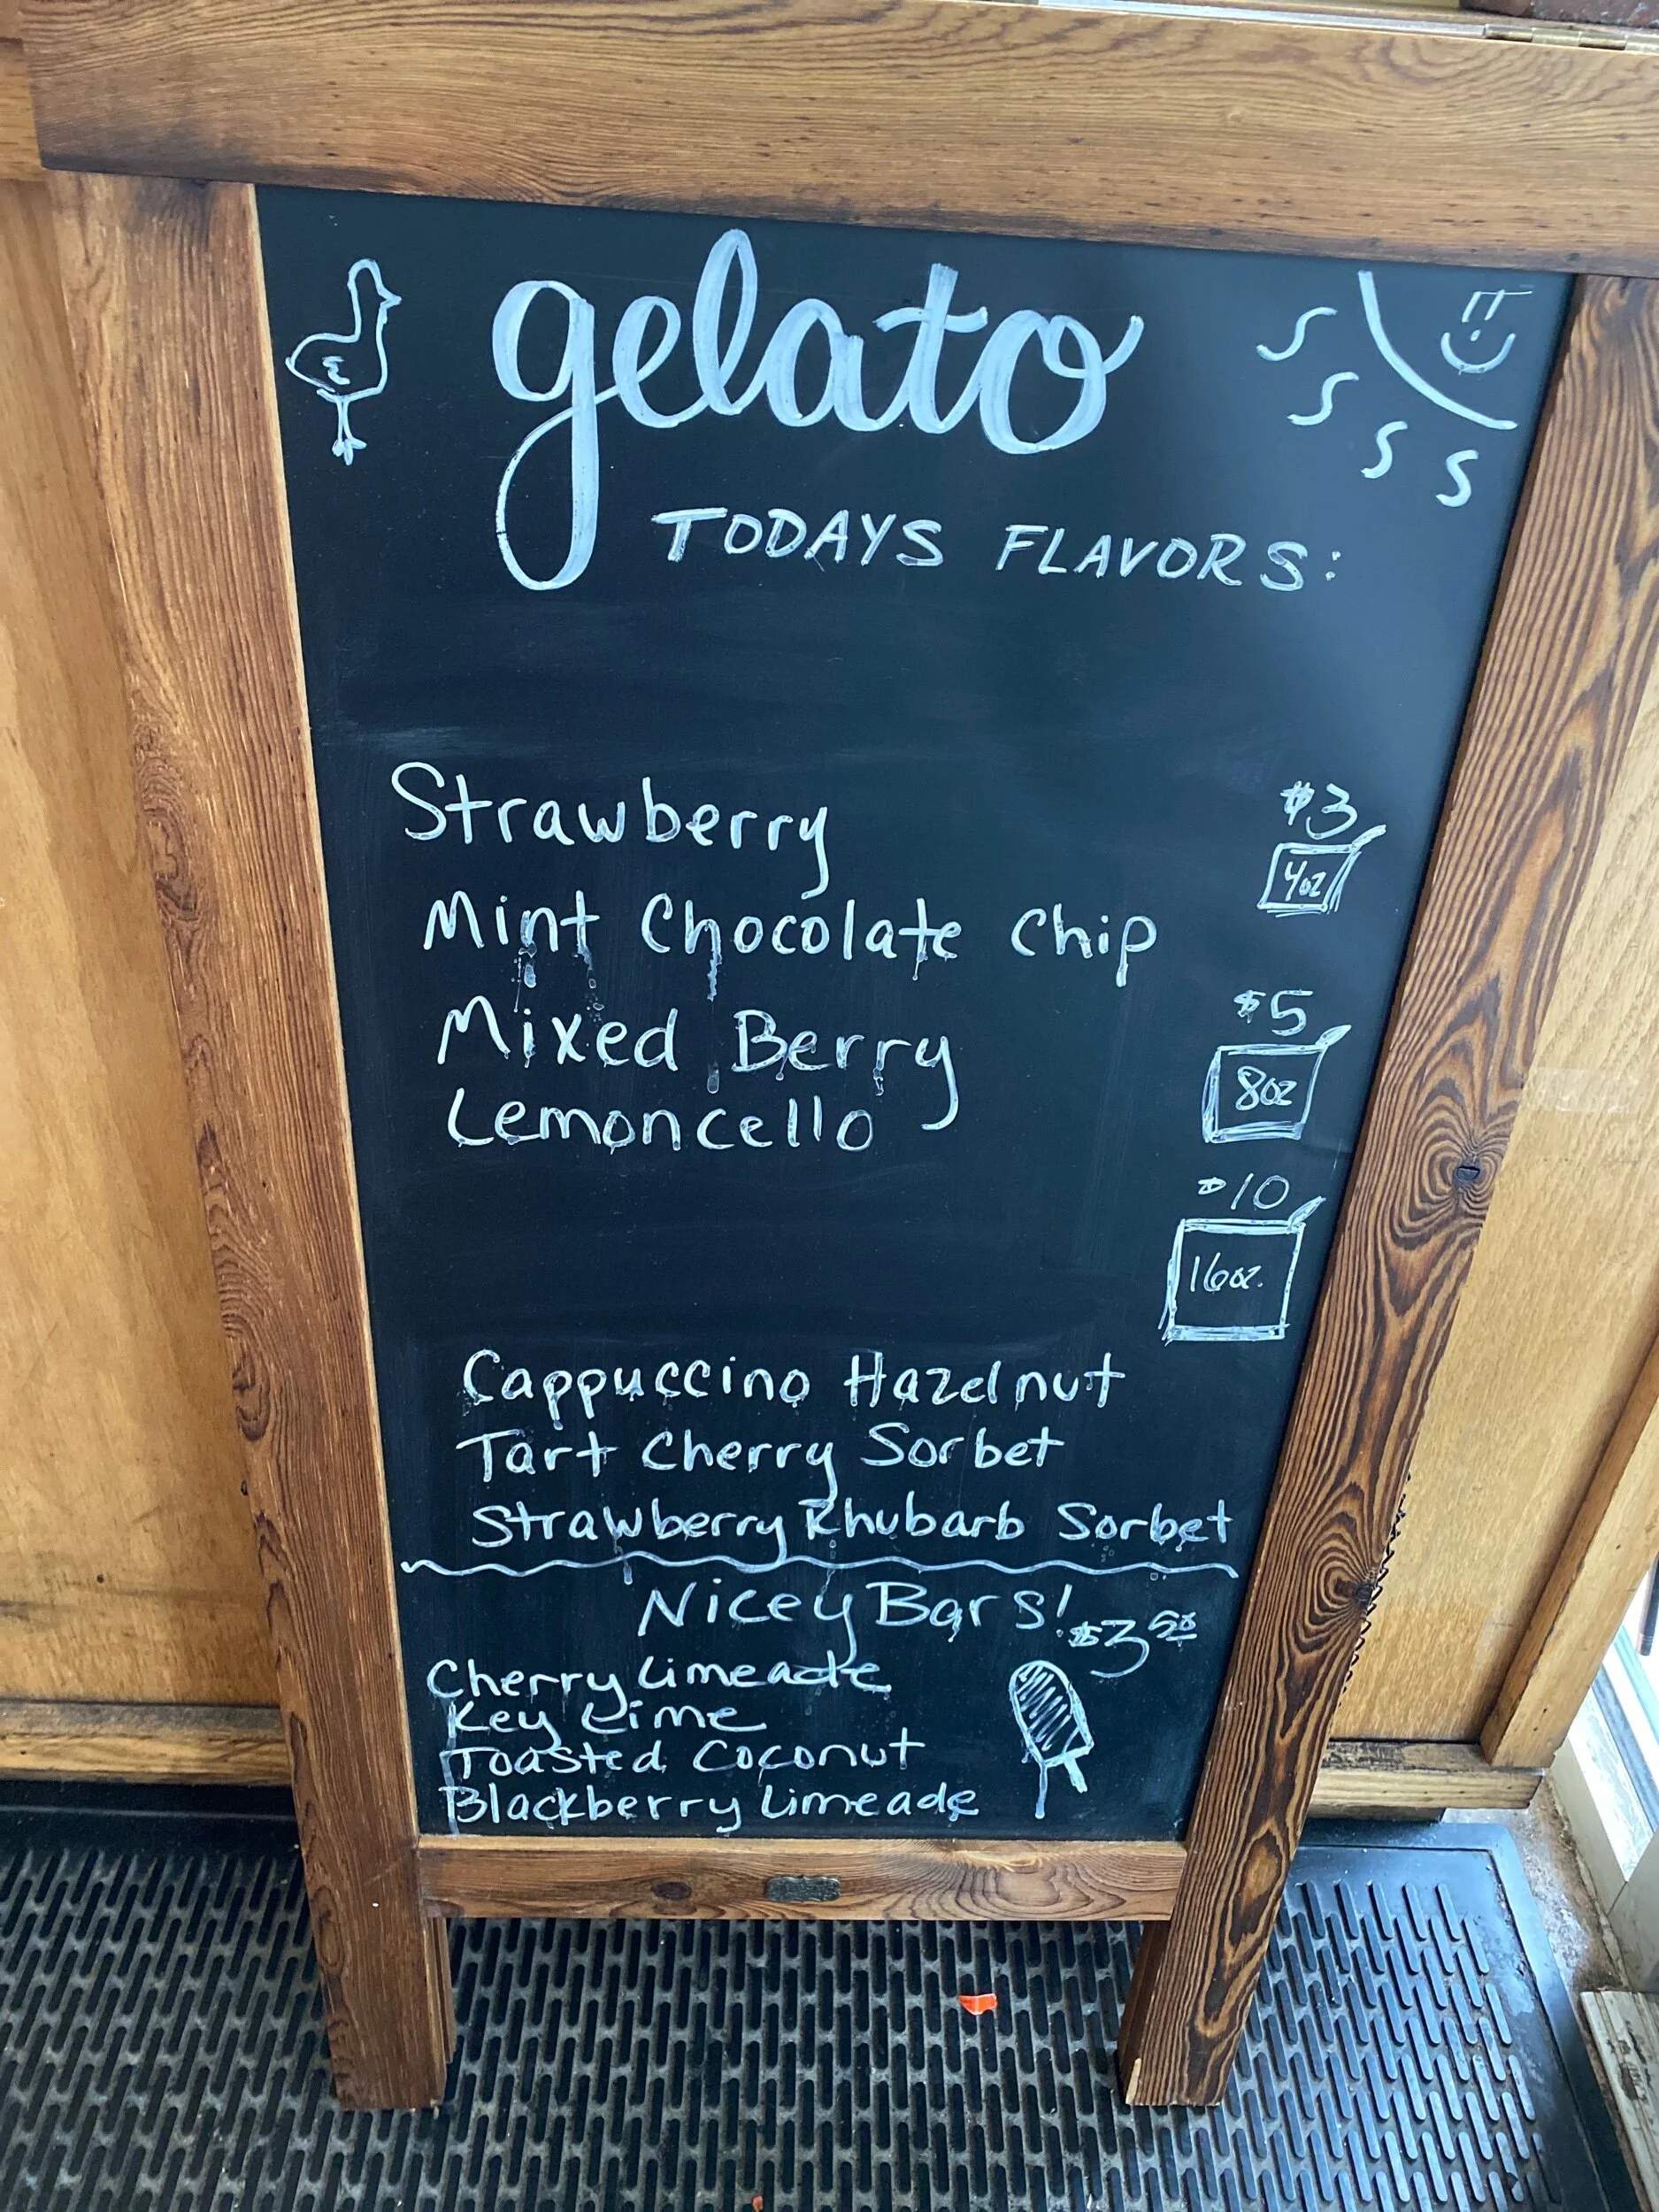 gelato
TODAYS FLAVORS:
Strawberry
$3
4oz
Mint Chocolate Chip
Mixed Berry
$5
8oz
Lemoncello
$10
16oz.
Cappuccino Hazelnut
Tart Cherry Sorbet
Strawberry Rhubarb Sorbet
Nicey Bars!
$3 50
Cherry Limeade
Key Lime
Toasted Coconut
Blackberry Limeade